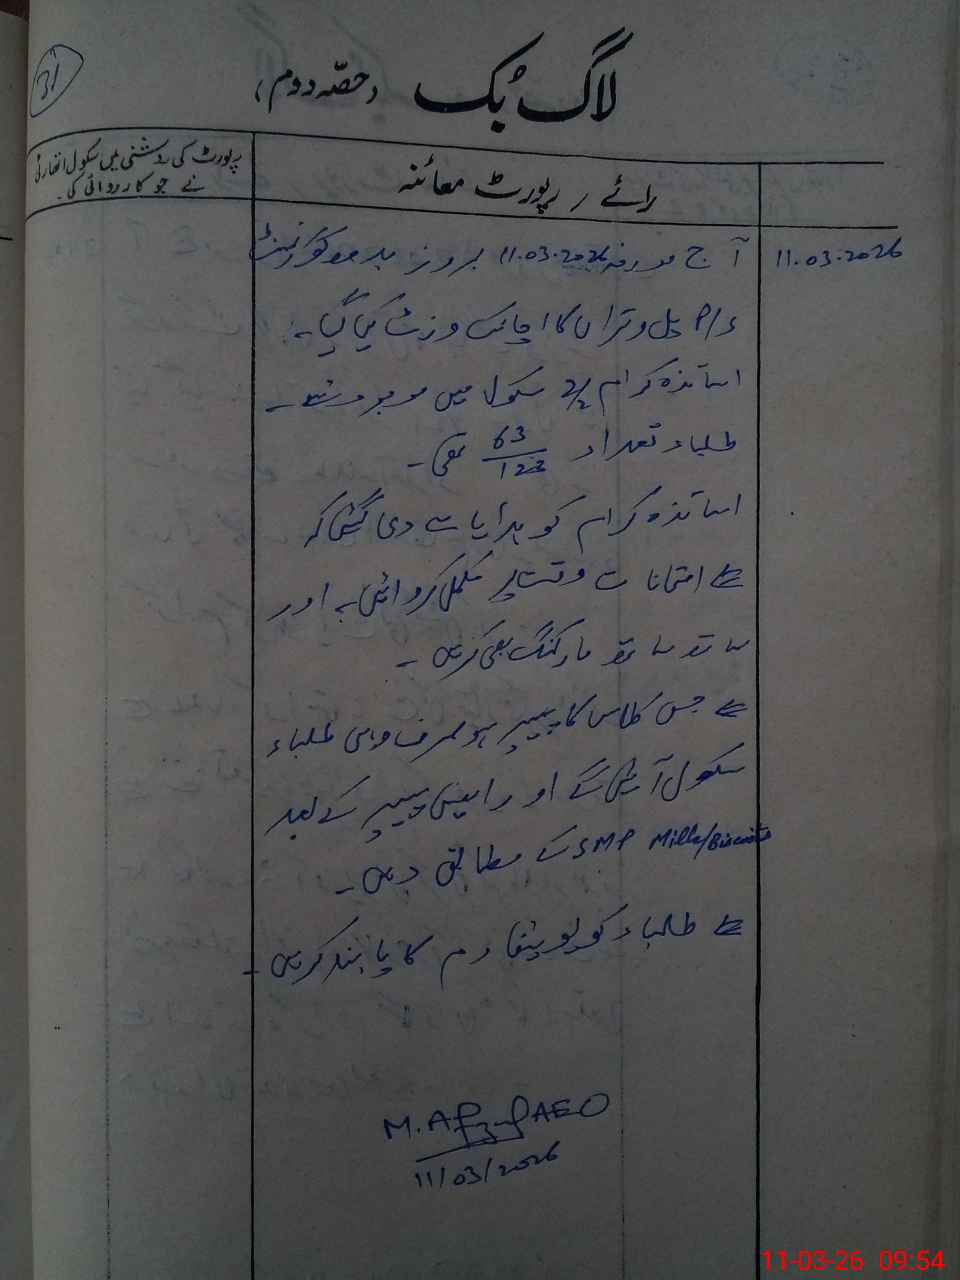 31
لاگ بُک (حصّہ دوم)
رائے / رپورٹ معائنہ
رپورٹ کی روشنی میں سکول اتھارٹی
نے جو کارروائی کی۔
11.03.2026
آج مورخہ 11.03.2026 بروز بدھ کو گورنمنٹ
P/S پل وتراں کا اچانک وزٹ کیا گیا۔
اساتذہ کرام 2/2 سکول میں موجود تھے۔
طلباء تعداد 63/123 تھی۔
اساتذہ کرام کو ہدایات دی گئیں کہ
امتحانات وقت پر مکمل کروائیں۔ اور
ساتھ ساتھ مارکنگ بھی کریں۔
جس کلاس کا پیپر ہو صرف وہی طلباء
سکول آئیں گے اور انہیں پیپر کے بعد
Milk/Biscuits SMP کے مطابق دیں۔
طلباء کو یونیفارم کا پابند کریں۔
M. Afzal AEO
11/03/2026
11-03-26 09:54